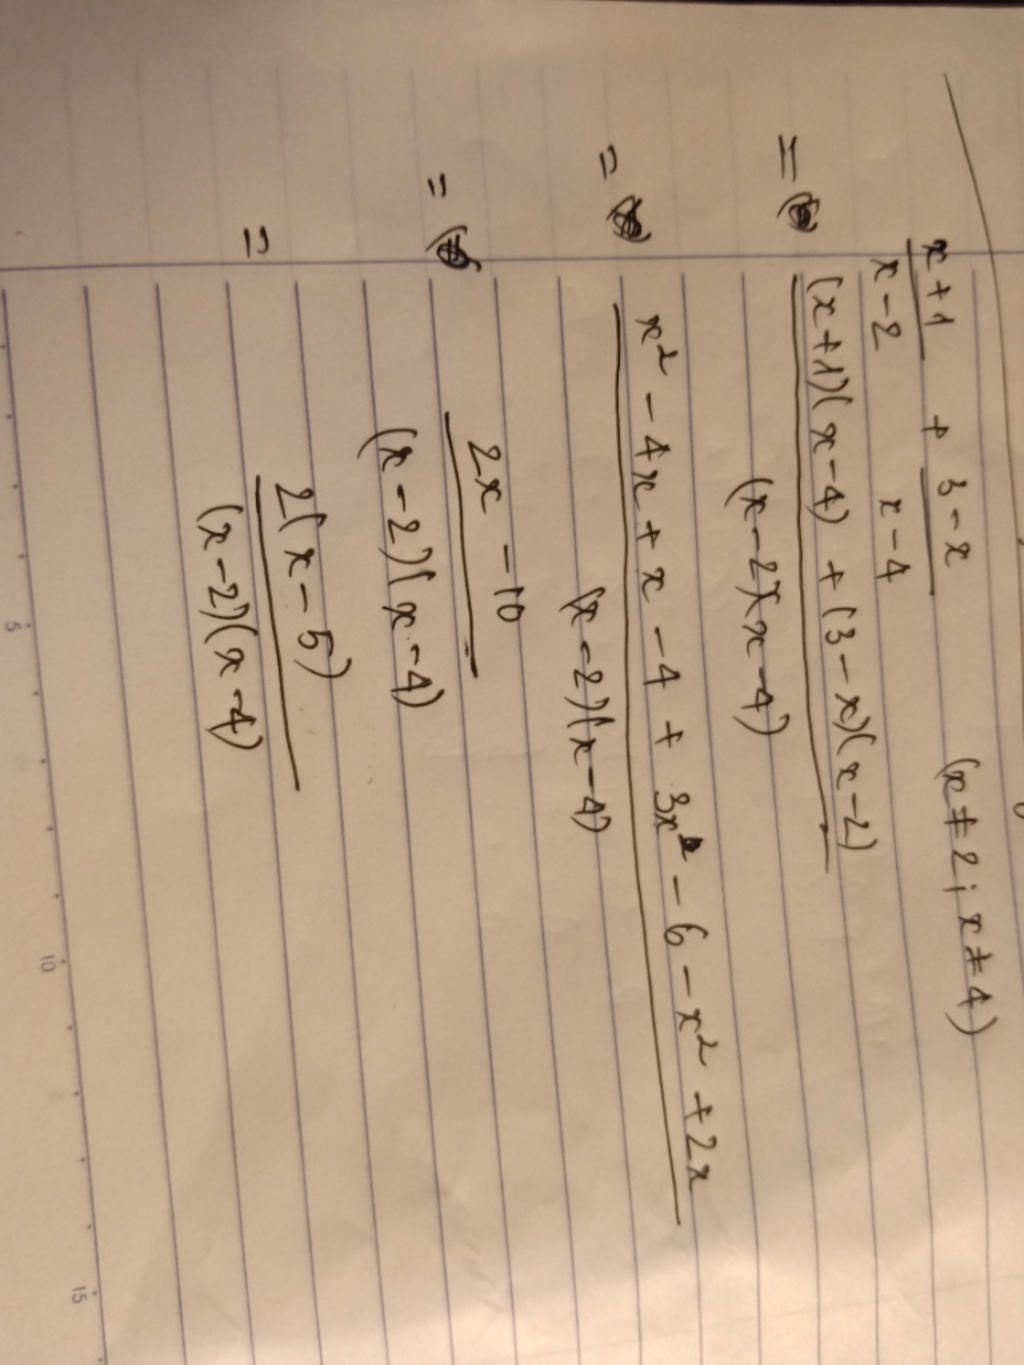 x+1 / x-2 + 3-x / x-4 (x≠2; x≠4)
= (x+1)(x-4) + (3-x)(x-2) / (x-2)(x-4)
= x² - 4x + x - 4 + 3x - 6 - x² + 2x / (x-2)(x-4)
= 2x - 10 / (x-2)(x-4)
= 2(x-5) / (x-2)(x-4)
5
10
15